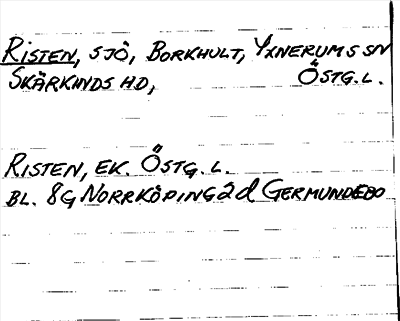 RISTEN, SJÖ, BORKHULT, YXNERUMS SN
SKÄRKINDS HD, ÖSTG. L.
RISTEN, EK. ÖSTG. L.
BL. 8G NORRKÖPING 2d GERMUNDEBO